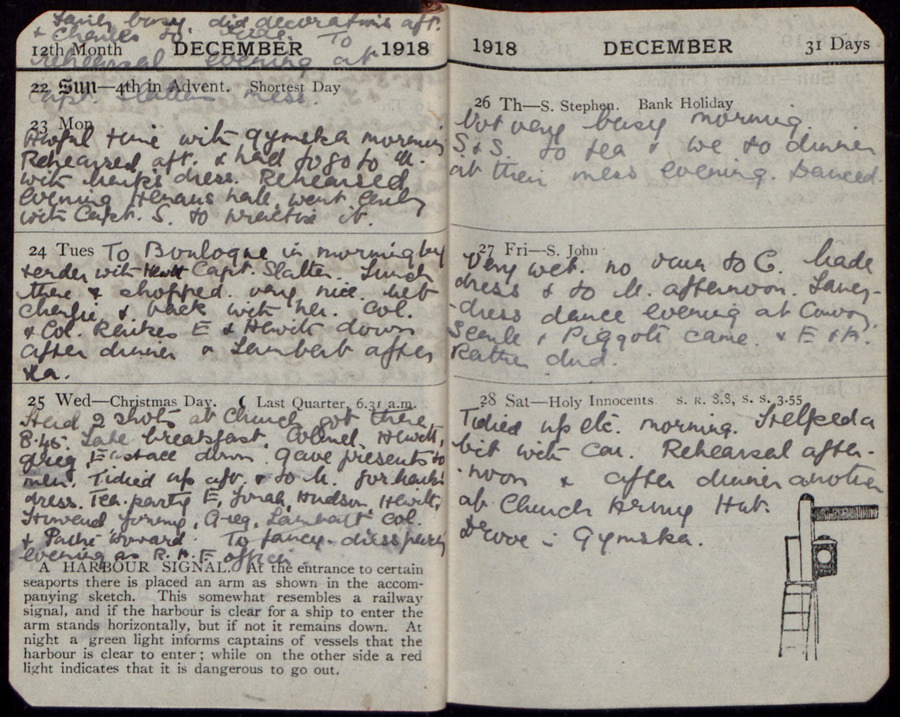 Fairly busy. did decorations aft.
& Charles to To
12th Month DECEMBER 1918
rehearsal evening at
22 Sun—4th in Advent. Shortest Day
Capt. Slatter's Mess.
23 Mon
Awful time with gymska morning
Rehearsed aft. & had to go to M.
with dress. Rehearsed
evening hall, went early
with Capt. S. to practise it.
24 Tues To Boulogne in morning by
tender with Capt. Slatter. Lunch
there & shopped. very nice. Met
Charlie & back with her. Col.
& Col. E & Hewitt down
after dinner & Lambert after
tea.
25 Wed—Christmas Day. ☾ Last Quarter, 6.31 a.m.
Held 2 shots at Church, got there
8.45. Late breakfast. Colonel, Hewitt,
Greg, Eustace down. Gave presents to
men. Tidied up aft. & to M. for
dress. Tea-party E, Jonah, Hudson, Hewitt,
Greg, Lambert Col.
& To fancy-dress party
evening as R.A.F. officer.
A HARBOUR SIGNAL. At the entrance to certain
seaports there is placed an arm as shown in the accom-
panying sketch. This somewhat resembles a railway
signal, and if the harbour is clear for a ship to enter the
arm stands horizontally, but if not it remains down. At
night a green light informs captains of vessels that the
harbour is clear to enter; while on the other side a red
light indicates that it is dangerous to go out.
1918 DECEMBER 31 Days
26 Th—S. Stephen. Bank Holiday
Not very busy morning.
S & S. to tea & we to dinner
at their mess evening. Danced.
27 Fri—S. John
Very wet. no to C. Made
dress & to M. afternoon. Fancy-
-dress dance evening at Convoy.
Searle & Piggott came. & E & A.
Rather dud.
28 Sat—Holy Innocents S. R. 8.8, S. S. 3.55
Tidied up etc. morning. Helped a
bit with car. Rehearsal after-
-noon & after dinner another
at Church Army Hut.
Drove in Gymska.